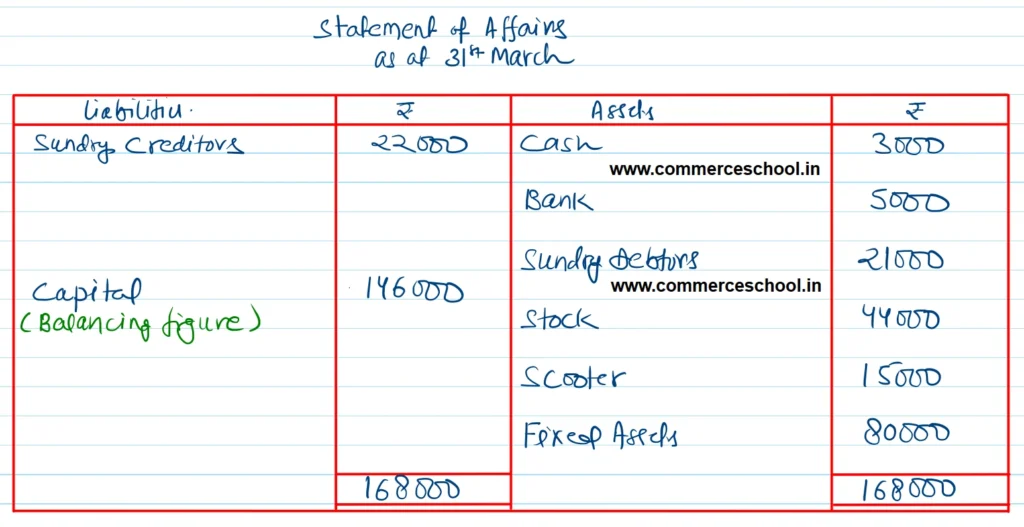 Statement of Affairs
as at 31st March
Liabilities. ₹ Assets ₹
Sundry Creditors 22000 Cash 3000
www.commerceschool.in
Bank 5000
Sundry Debtors 21000
Capital 146000 www.commerceschool.in
(Balancing figure) Stock 44000
Scooter 15000
Fixed Assets 80000
168000 168000